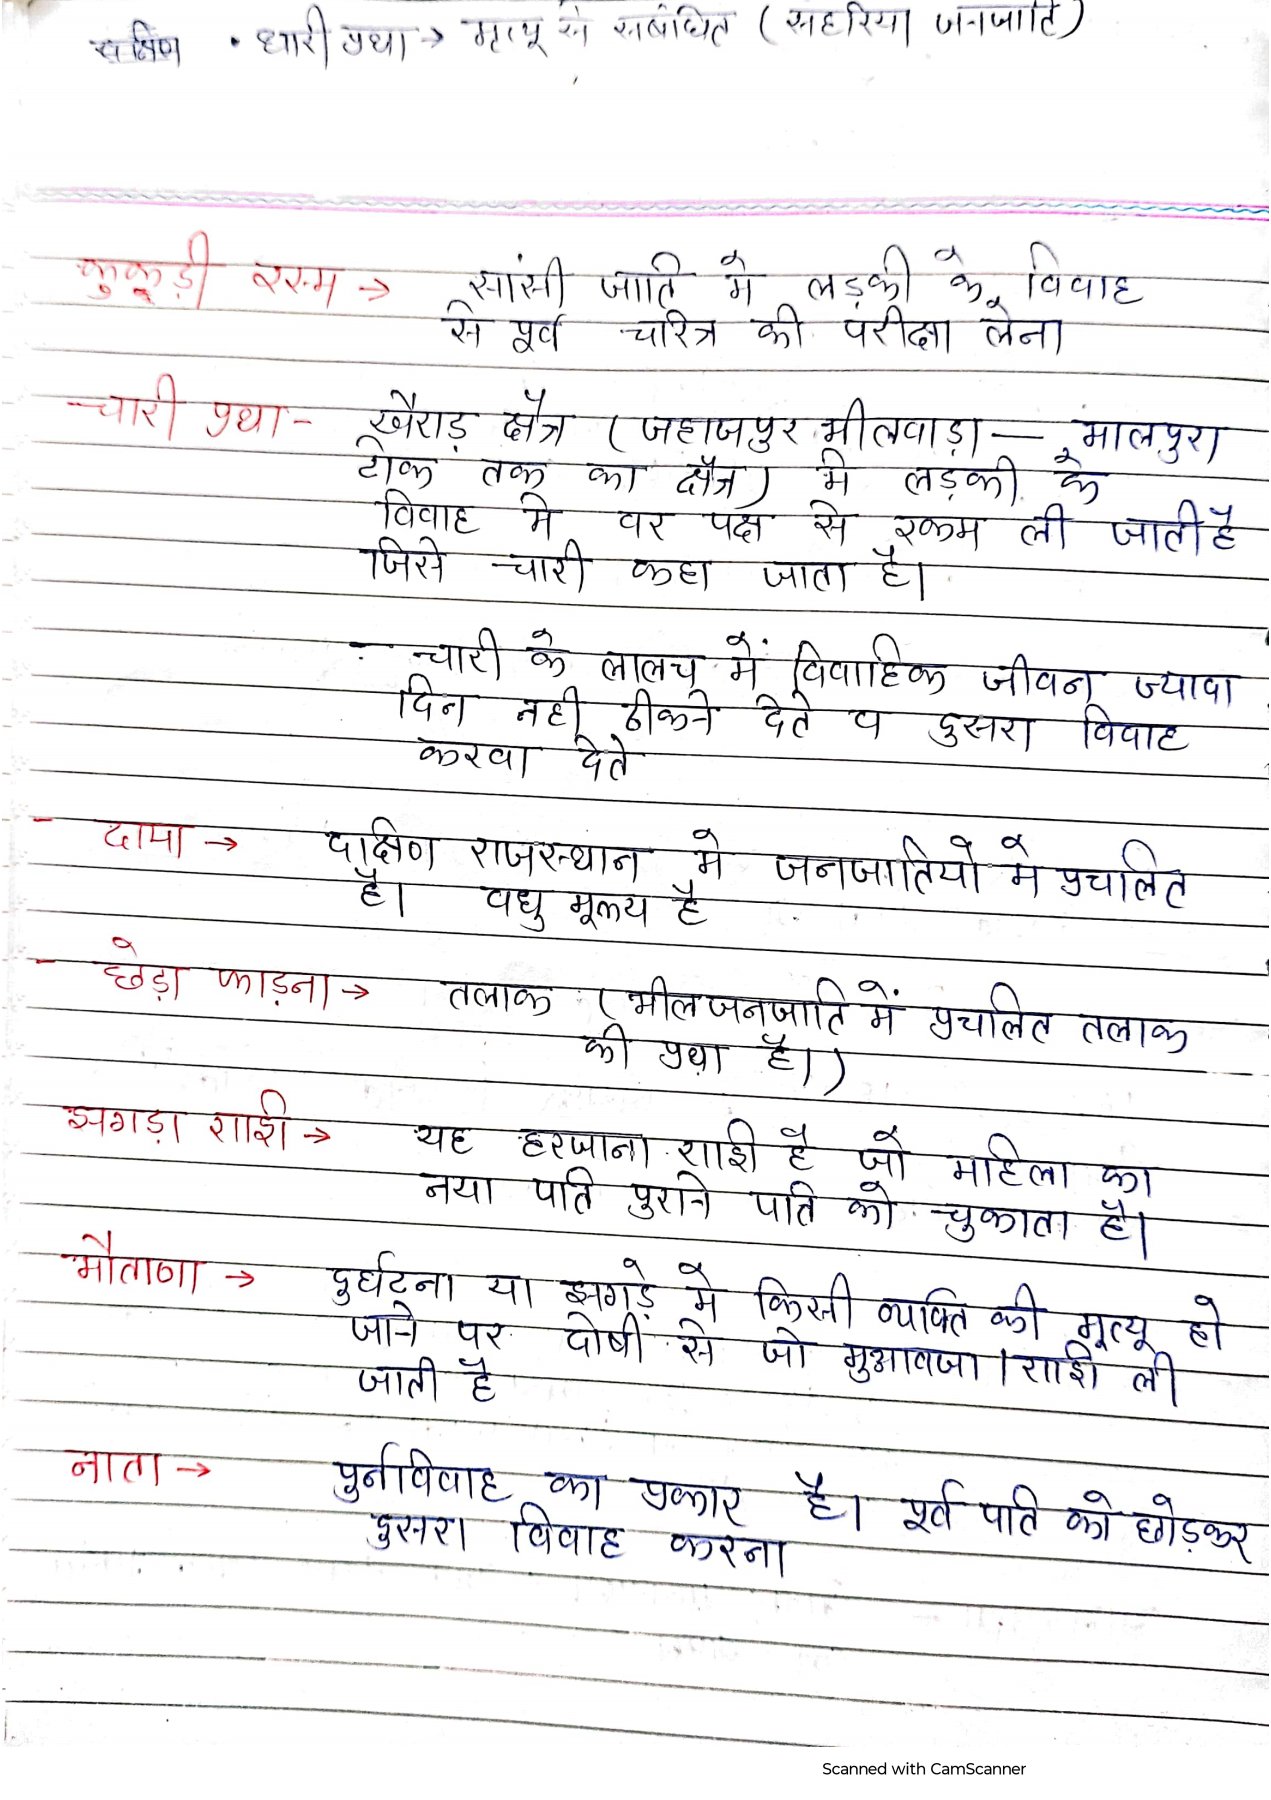 • धारी प्रथा → मृत्यू से सबंधित (सहरिया जनजाति)
कुकूड़ी रस्म → सांसी जाति मे लड़की के विवाह
से पूर्व चरित्र की परीक्षा लेना
चारी प्रथा - खैराड़ क्षैत्र (जहाजपुर भीलवाड़ा — मालपुरा
टोंक तक का क्षैत्र) मे लड़की के
विवाह मे वर पक्ष से रकम ली जाती है
जिसे चारी कहा जाता है।
- चारी के लालच में विवाहिक जीवन ज्यादा
दिन नही टीकने देते व दुसरा विवाह
करवा देते
- दापा → दक्षिण राजस्थान मे जनजातियो मे प्रचलित
है। वधु मूल्य है
- छेड़ा फाड़ना → तलाक (भील जनजाति में प्रचलित तलाक
की प्रथा है।)
झगड़ा राशि → यह हरजाना राशि है जो महिला का
नया पति पुराने पति को चुकाता है।
मौताणा → दुर्घटना या झगड़े मे किसी व्यक्ति की मृत्यू हो
जाने पर दोषी से जो मुआवजा / राशि ली
जाती है
नाता → पुर्नविवाह का प्रकार है। पूर्व पति को छोड़कर
दुसरा विवाह करना
Scanned with CamScanner